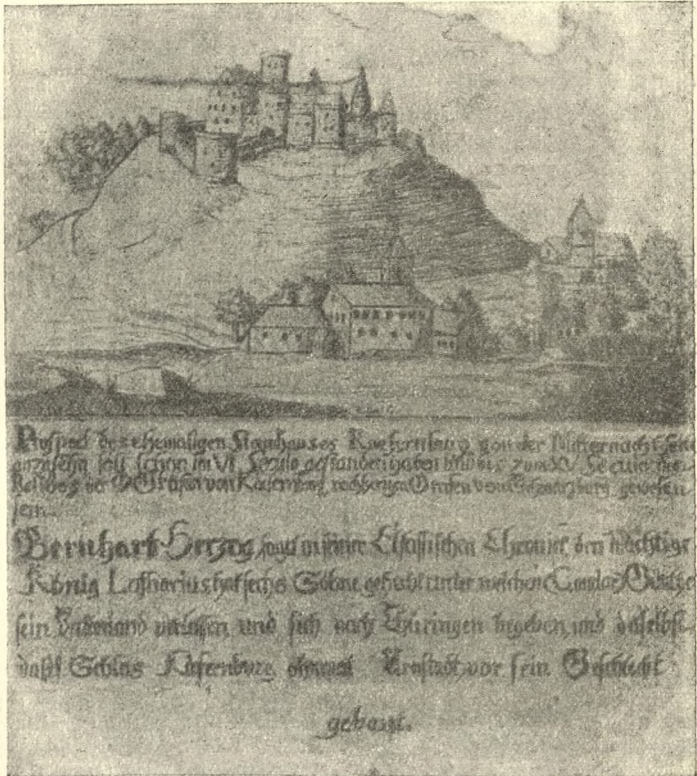 Prospect des ehemaligen Stamhauses Kaefernburg von der Mitternacht
anzusehn soll schon im VI Seculo gestanden haben und bis zum XV. Seculo
Residenz der Grafen von Kaefernburg, nachherigen Grafen von Schwartzburg gewesen
sein.
Bernhart Herzog, sagt in seiner Elsassischen Chronick, den Mächtige
König Lotharius hat sechs Söhne gehabt unter welchen
sein Vaderland verlassen und sich nach Thüringen begeben und daselbst
dass Schlos Käfernburg ohnweit Arnstadt vor sein Geschlecht
gebauet.